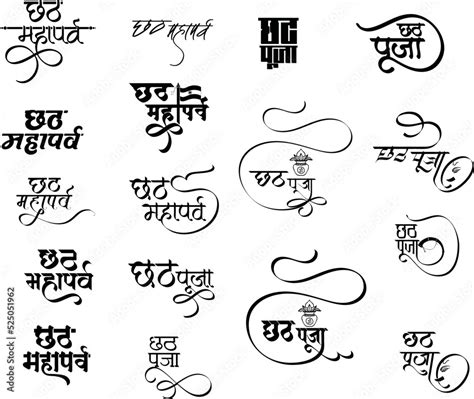 छठ
महापर्व
छठ
महापर्व
छठ
महापर्व
छठ
महापर्व
छठ
महापर्व
छठ महापर्व
छठ
महापर्व
छठ
महापर्व
छठ पूजा
छठ
पूजा
छठ
पूजा
छठ पूजा
छठ पूजा
छठ
पूजा
छठ पूजा
छठ
पूजा
छठ
पूजा
Adobe Stock | #525051962